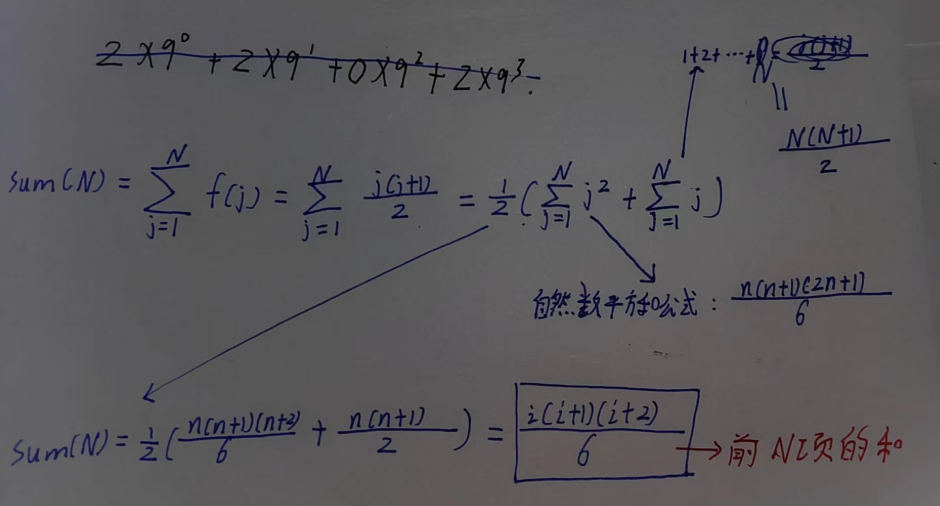 2×9⁰ + 2×9¹ + 0×9² + 2×9³
1+2+…+N = N(N+1)/2
sum(N) = ∑_{j=1}^{N} f(j) = ∑_{j=1}^{N} j(j+1)/2 = 1/2(∑_{j=1}^{N} j² + ∑_{j=1}^{N} j)
自然数平方和公式：n(n+1)(2n+1)/6
sum(N) = 1/2(n(n+1)(n+2)/6 + n(n+1)/2) = i(i+1)(i+2)/6 → 前N项的和